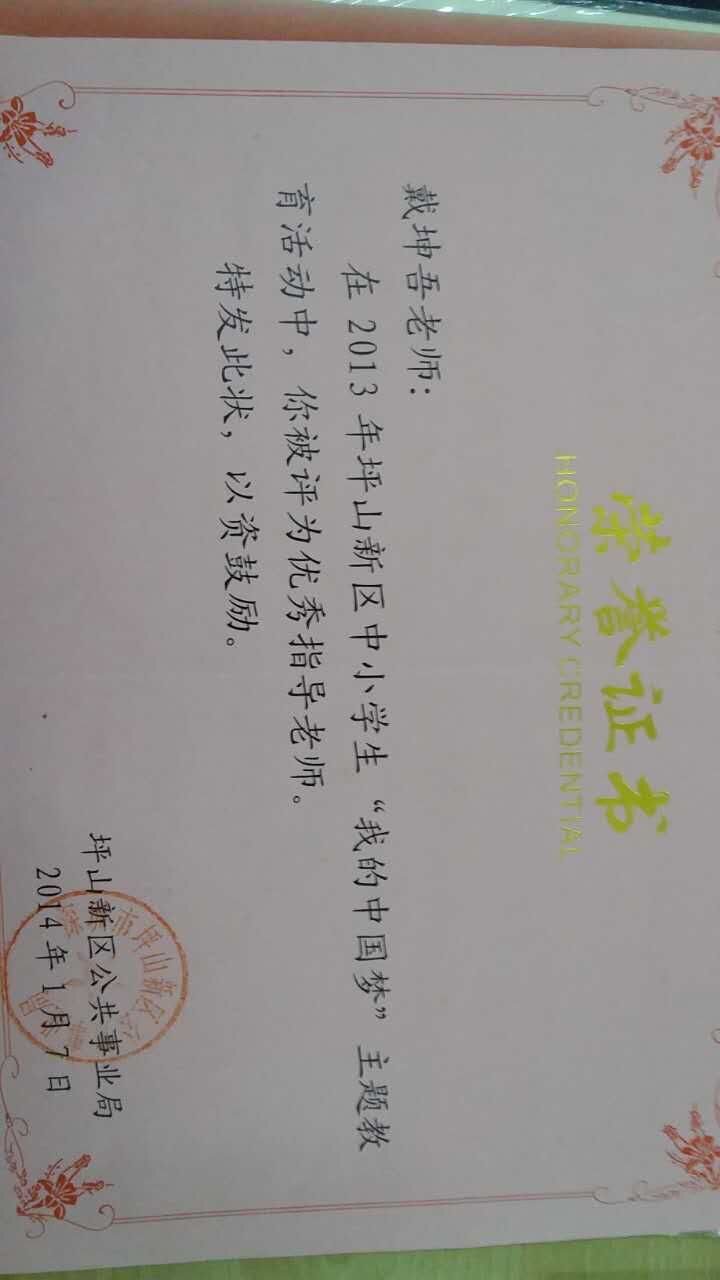 荣誉证书
HONORARY CREDENTIAL
戴坤吾老师：
在2013年坪山新区中小学生“我的中国梦”主题教
育活动中，你被评为优秀指导老师。
特发此状，以资鼓励。
坪山新区公共事业局
2014年1月7日
市坪山新区